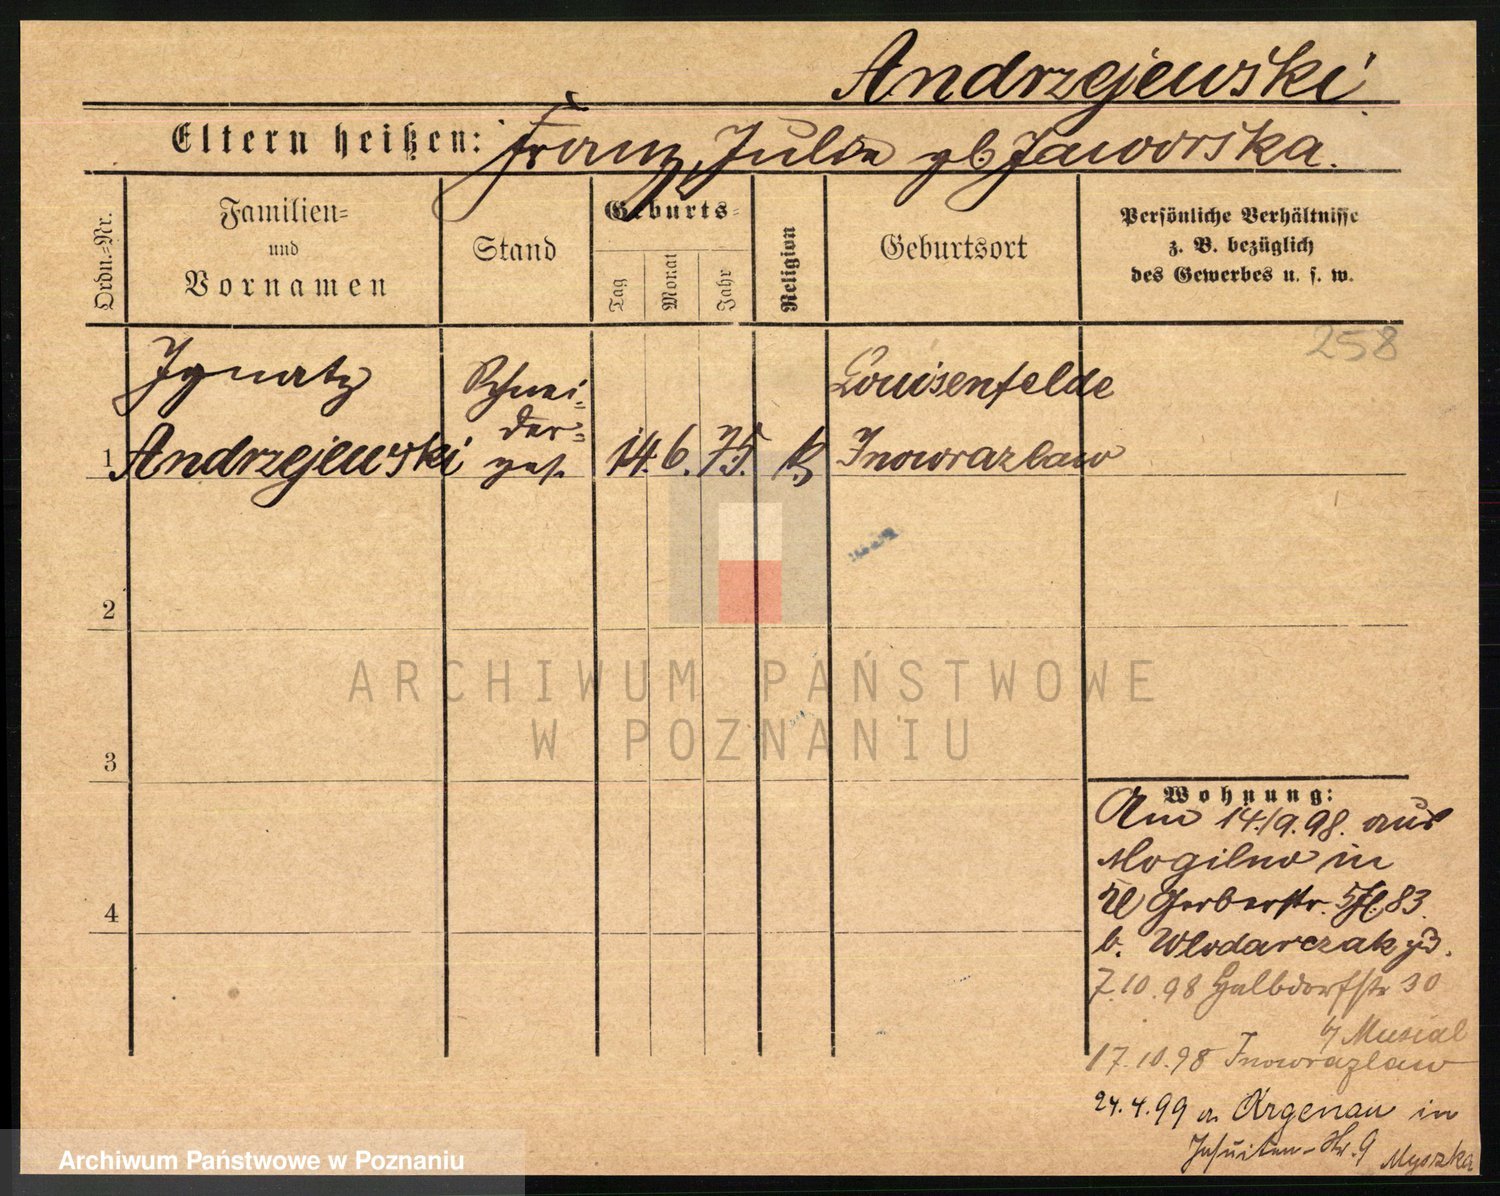 Andrzejewski
Eltern heißen: Franz, Julia gb Jaworska.
Ordn.=Nr.
Familien=
und
Vornamen
Stand
Geburts=
Tag
Monat
Jahr
Religion
Geburtsort
Persönliche Verhältnisse
z. B. bezüglich
des Gewerbes u. s. w.
258
Ignatz
Schnei-
Louisenfelde
der-
1 Andrzejewski
ges. 14. 6. 75. k. Inowrazlaw
2
ARCHIWUM PAŃSTWOWE
W POZNANIU
3
Wohnung:
Am 14./9. 98. aus
Mogilno in
Kl Gerberstr. 83.
b. Wlodarczak
7.10.98 Halbdorfstr 30
b/ Musial
17.10.98 Inowrazlaw
24.4.99 a. Argenau in
Jesuiten-Str. 9 Myszka
Archiwum Państwowe w Poznaniu